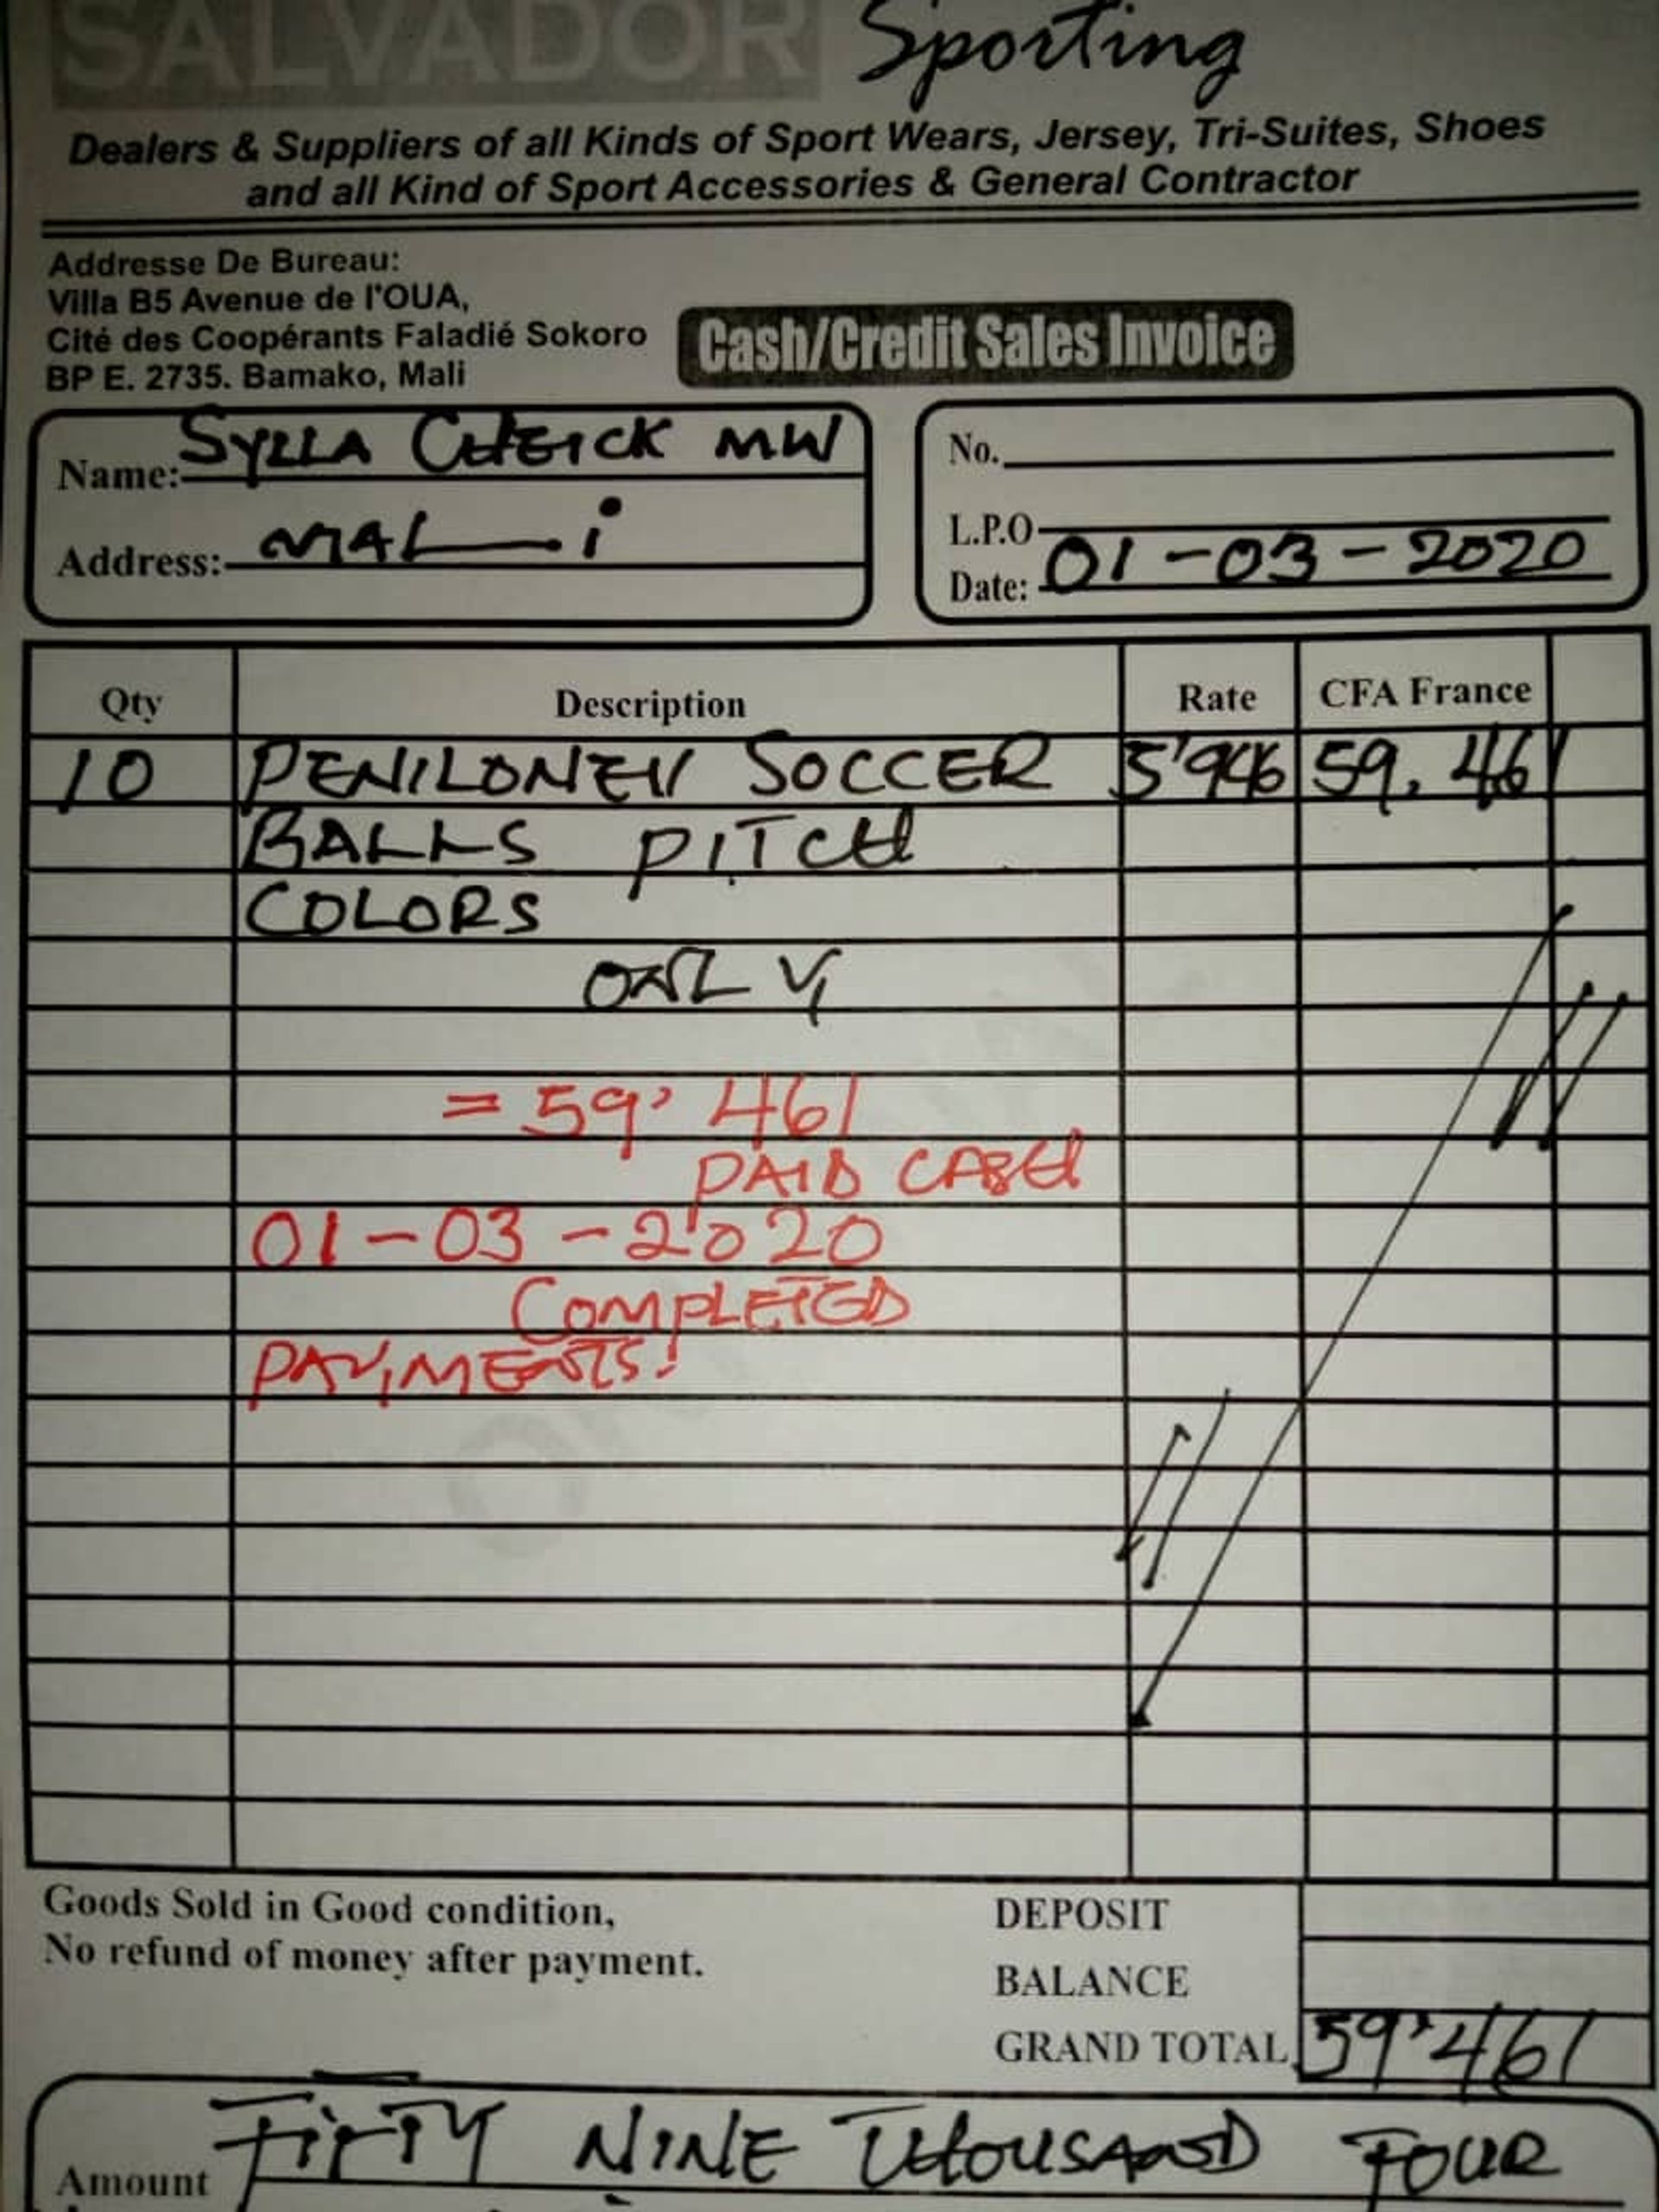 SALVADOR Sporting
Dealers & Suppliers of all Kinds of Sport Wears, Jersey, Tri-Suites, Shoes
and all Kind of Sport Accessories & General Contractor
Addresse De Bureau:
Villa B5 Avenue de l'OUA,
Cité des Coopérants Faladié Sokoro
BP E. 2735. Bamako, Mali
Cash/Credit Sales Invoice
Name: SYLLA CHEICK MW
Address: MALi
No.
L.P.O
Date: 01-03-2020
Qty Description Rate CFA France
10 PENILONEN SOCCER 5'946 59.461
BALLS PITCH
COLORS
ONLY
= 59'461
PAID CASH
01-03-2020
COMPLETED
PAYMENTS!
Goods Sold in Good condition,
No refund of money after payment.
DEPOSIT
BALANCE
GRAND TOTAL 59'461
Amount FIFTY NINE THOUSAND FOUR